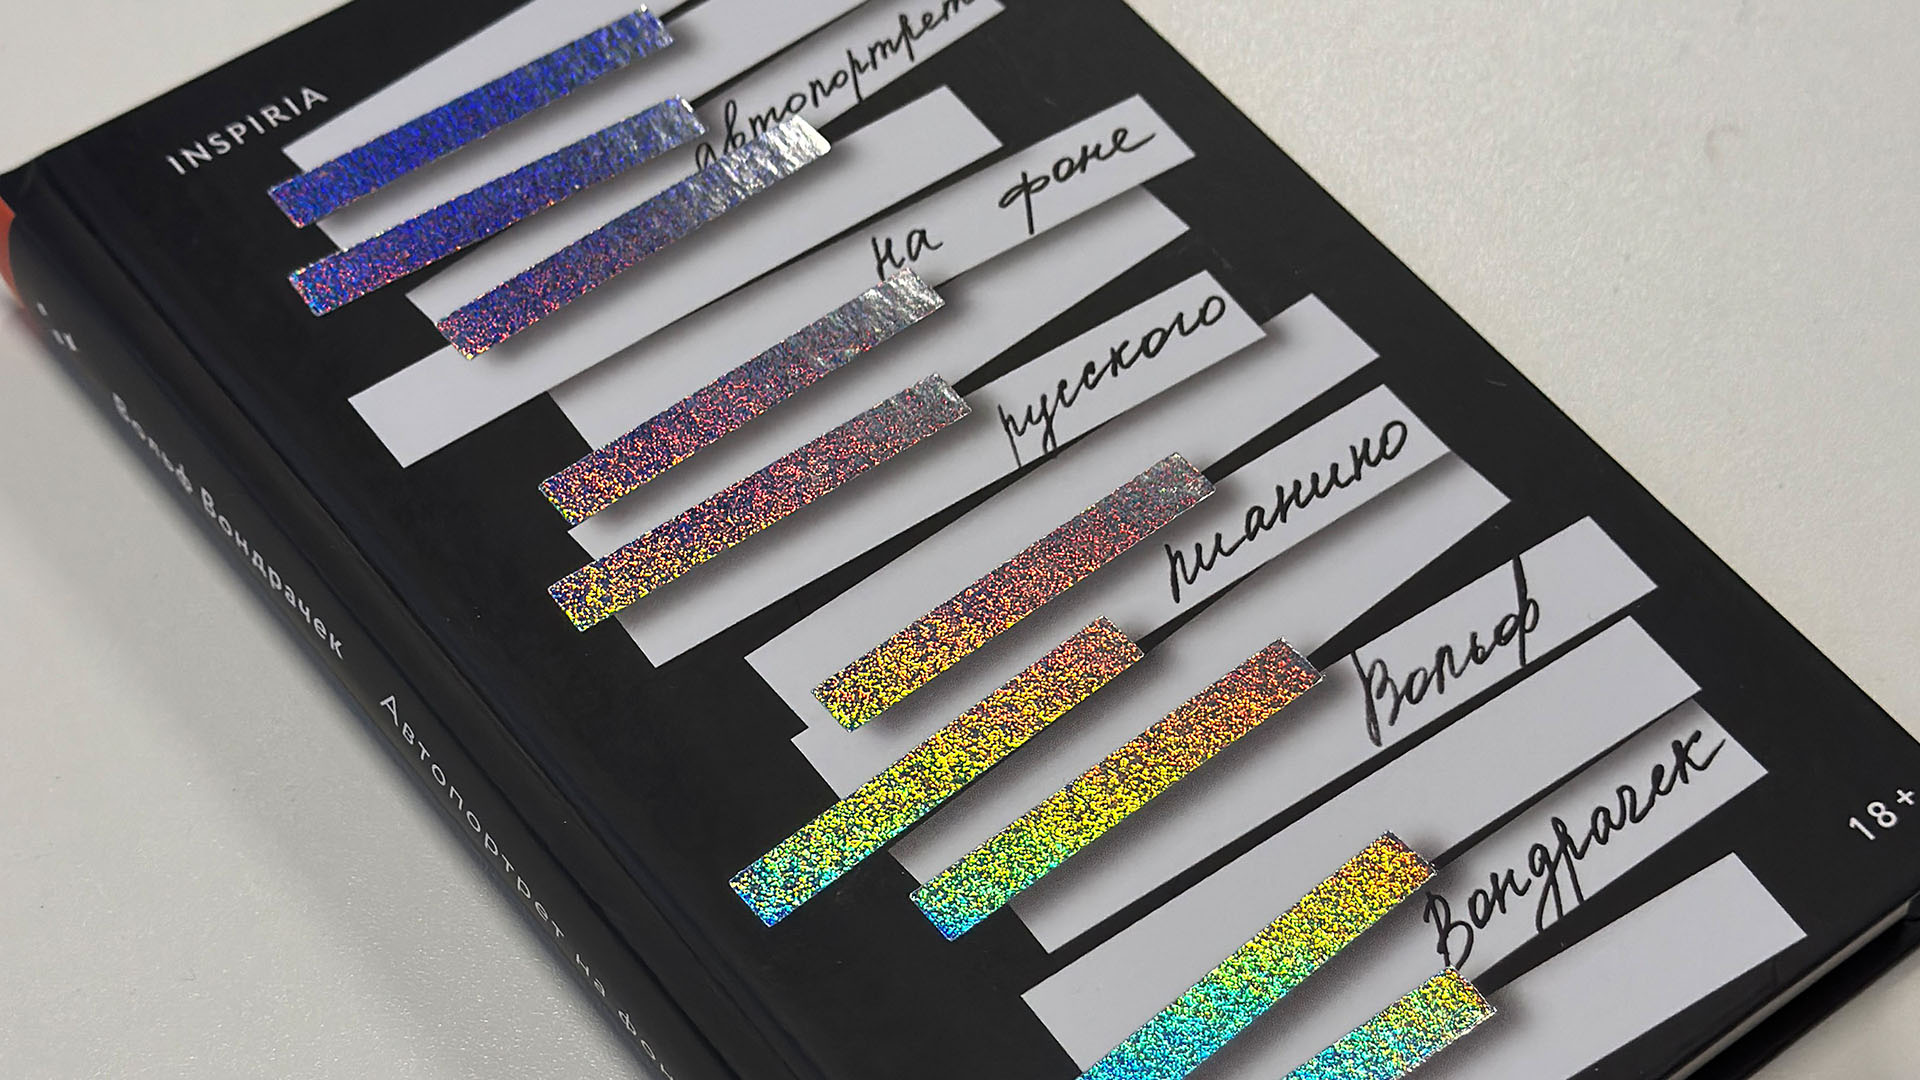 INSPIRIA
автопортрет
на фоне
русского
пианино
Вольф
Вондрачек
18+
Вольф Вондрачек Автопортрет на фон